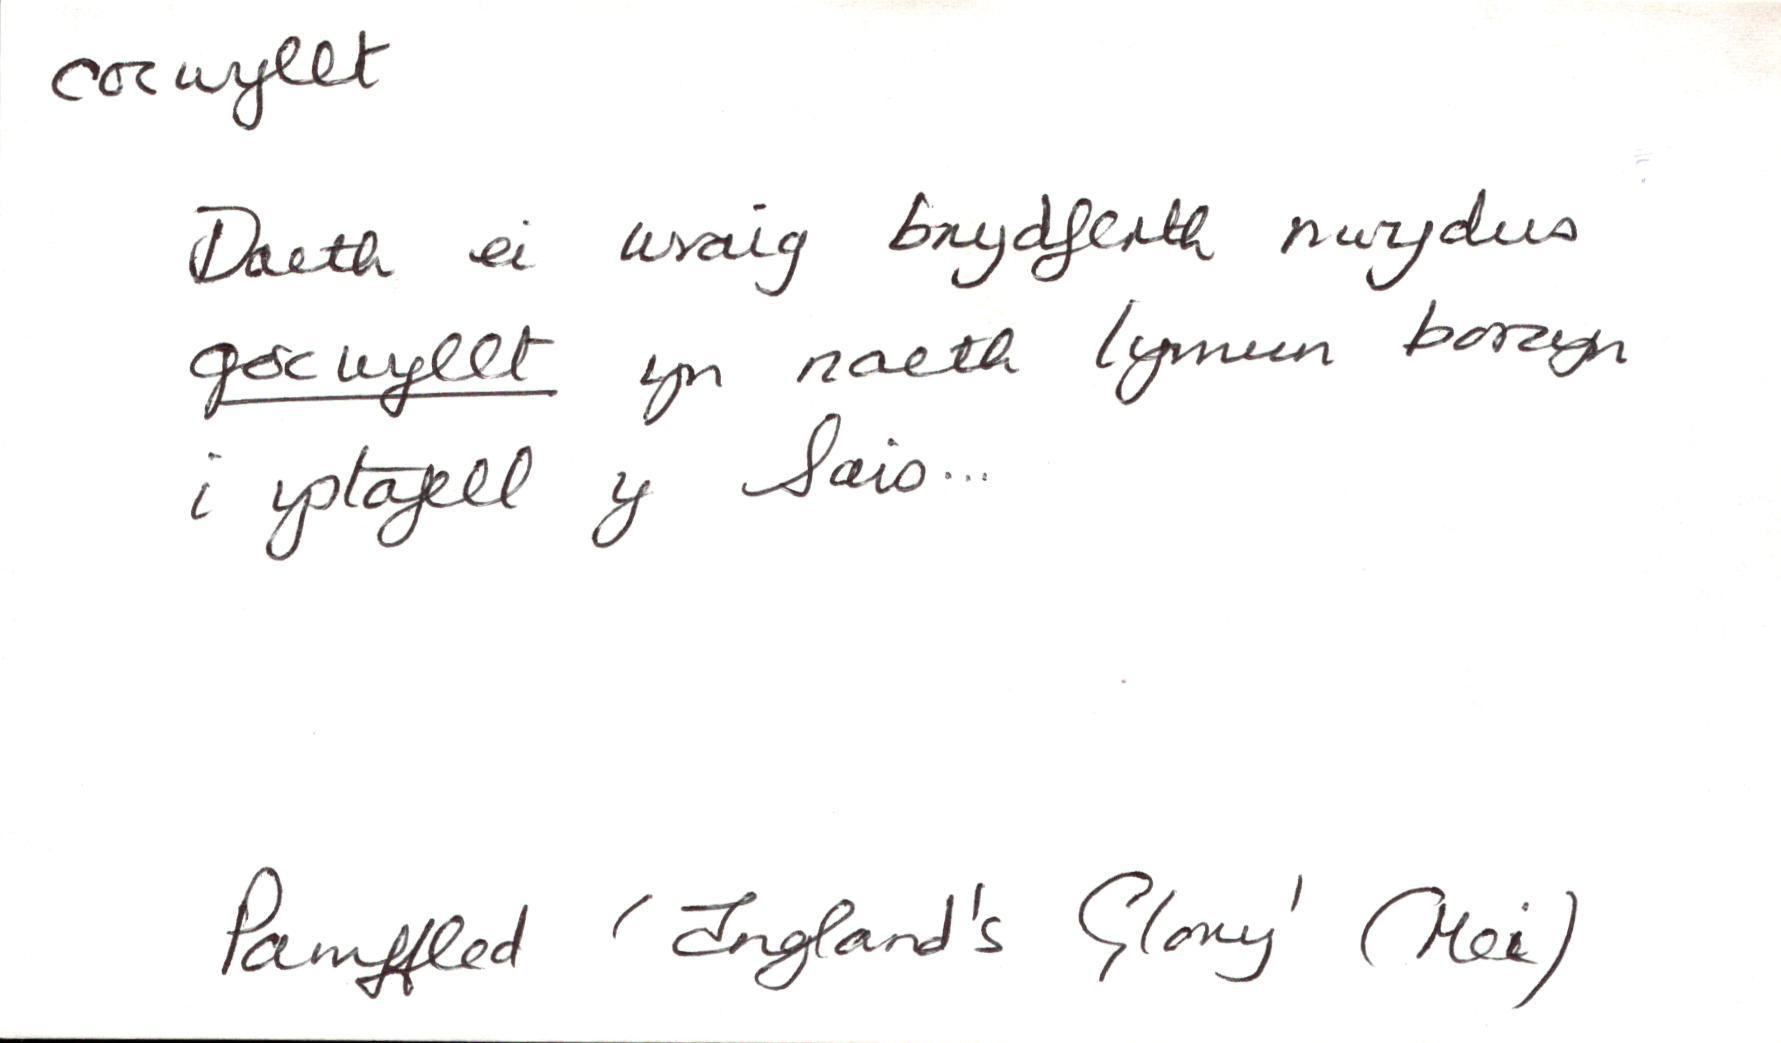 cocwyllt
Daeth ei wraig brydferth nwydus
gocwyllt yn noeth lymun borcyn
i ystafell y Sais...
Pamffled 'England's Glory' (Mei)